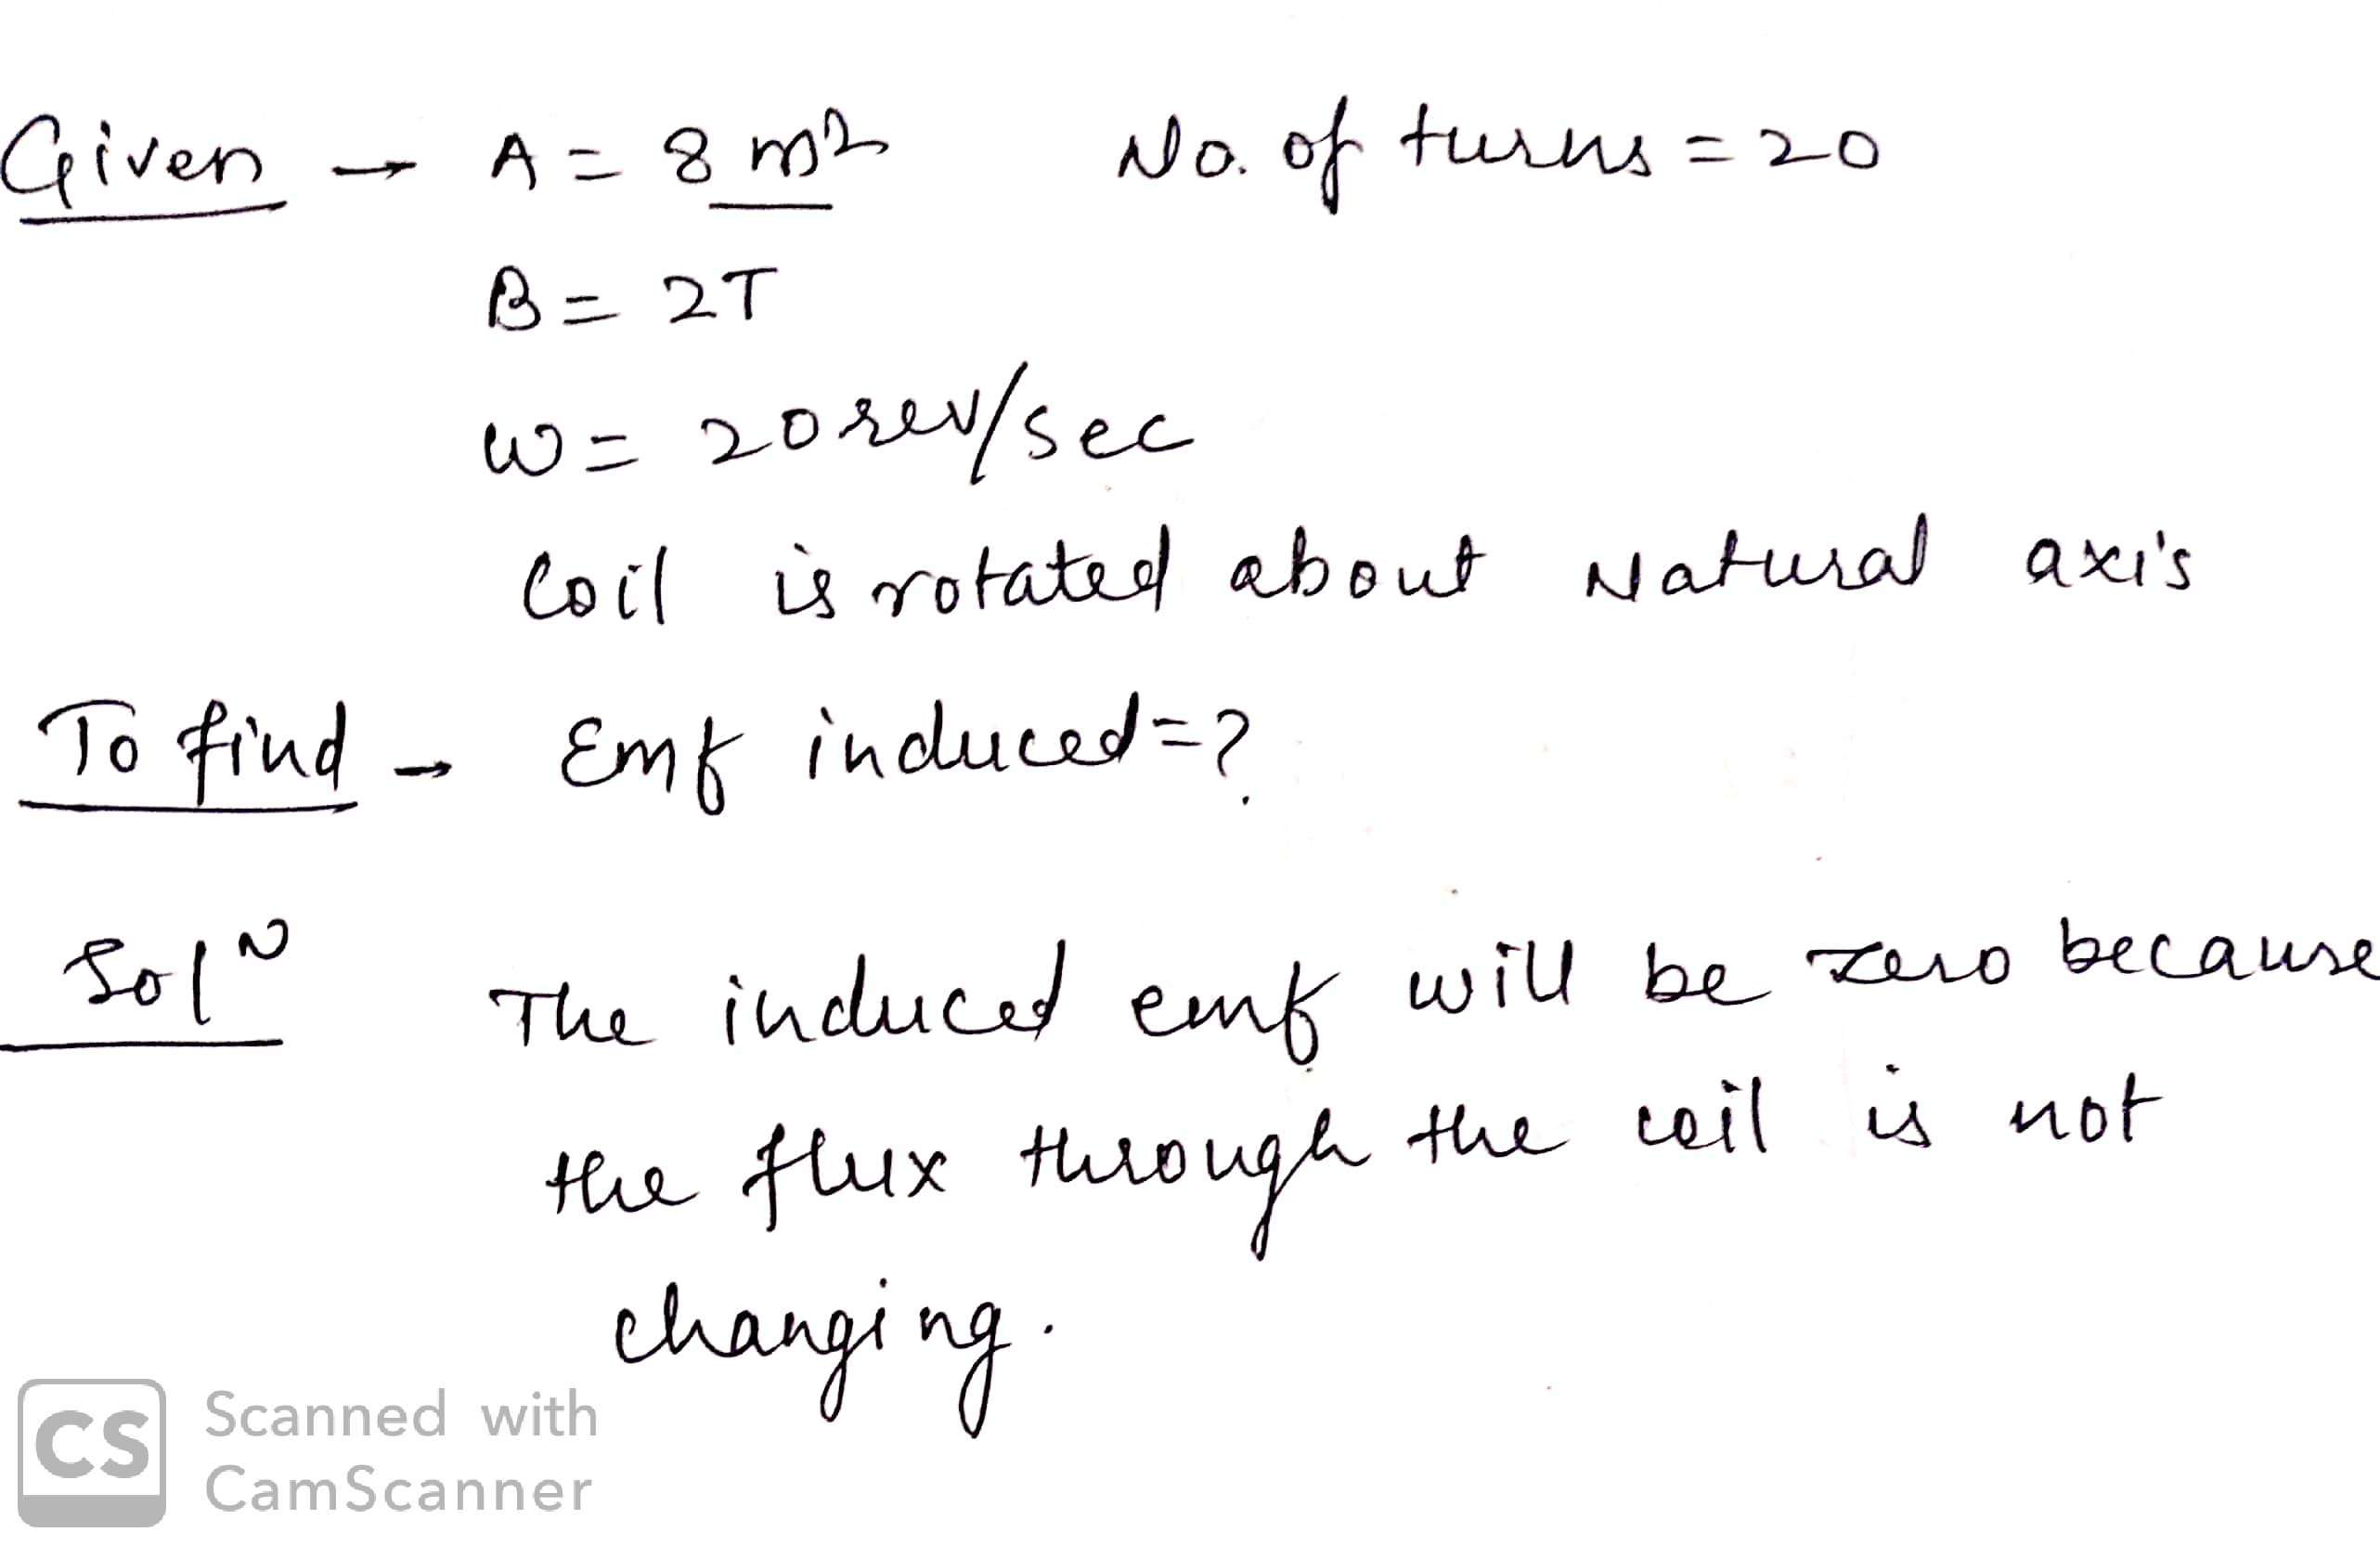 Given → A = 8 m² No. of turns = 20
B = 2T
w = 20 rev/sec
Coil is rotated about Natural axis
To find → Emf induced = ?
Solⁿ The induced emf will be zero because
the flux through the coil is not
changing.
CS Scanned with
CamScanner